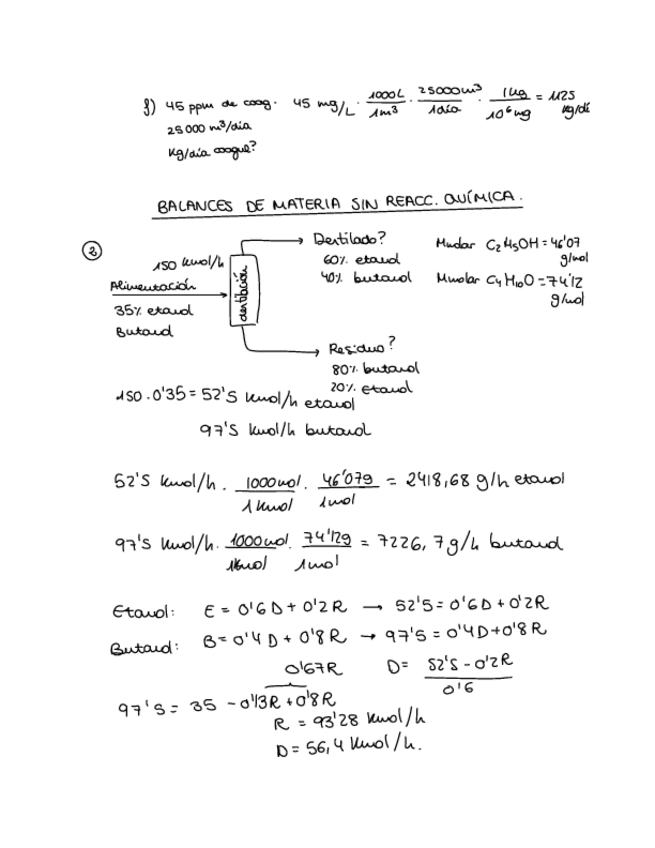 f) 45 ppm de coag. 45 mg/L · 1000L/1m³ · 25000m³/1día · 1kg/10⁶mg = 1125 kg/dí
25 000 m³/día
Kg/día coague?
BALANCES DE MATERIA SIN REACC. QUÍMICA.
② 150 Kmol/h
Alimentación
35% etanol
Butanol
destilación
Destilado?
60% etanol
40% butanol
Residuo?
80% butanol
20% etanol
Mmolar C₂H₅OH = 46'07 g/mol
Mmolar C₄H₁₀O = 74'12 g/mol
150 · 0'35 = 52'5 Kmol/h etanol
97'5 Kmol/h butanol
52'5 Kmol/h · 1000mol/1 Kmol · 46'07g/1mol = 2418,68 g/h etanol
97'5 Kmol/h · 1000mol/1Kmol · 74'12g/1mol = 7226,7 g/h butanol
Etanol: E = 0'6D + 0'2R → 52'5 = 0'6D + 0'2R
Butanol: B = 0'4D + 0'8R → 97'5 = 0'4D + 0'8R
0'67R D = 52'5 - 0'2R/0'6
97'5 = 35 - 0'13R + 0'8R
R = 93'28 Kmol/h
D = 56,4 Kmol/h.